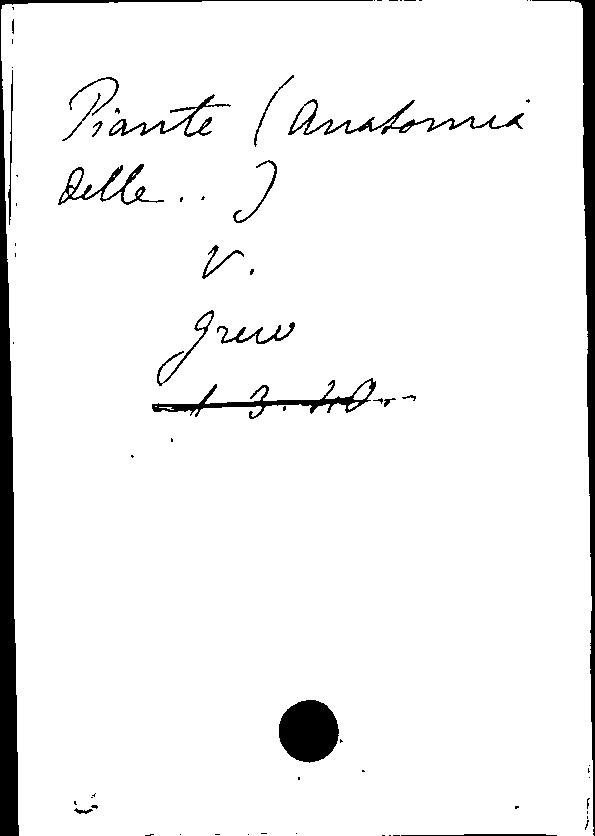 Piante (Anatomia
delle..)
V.
Grew